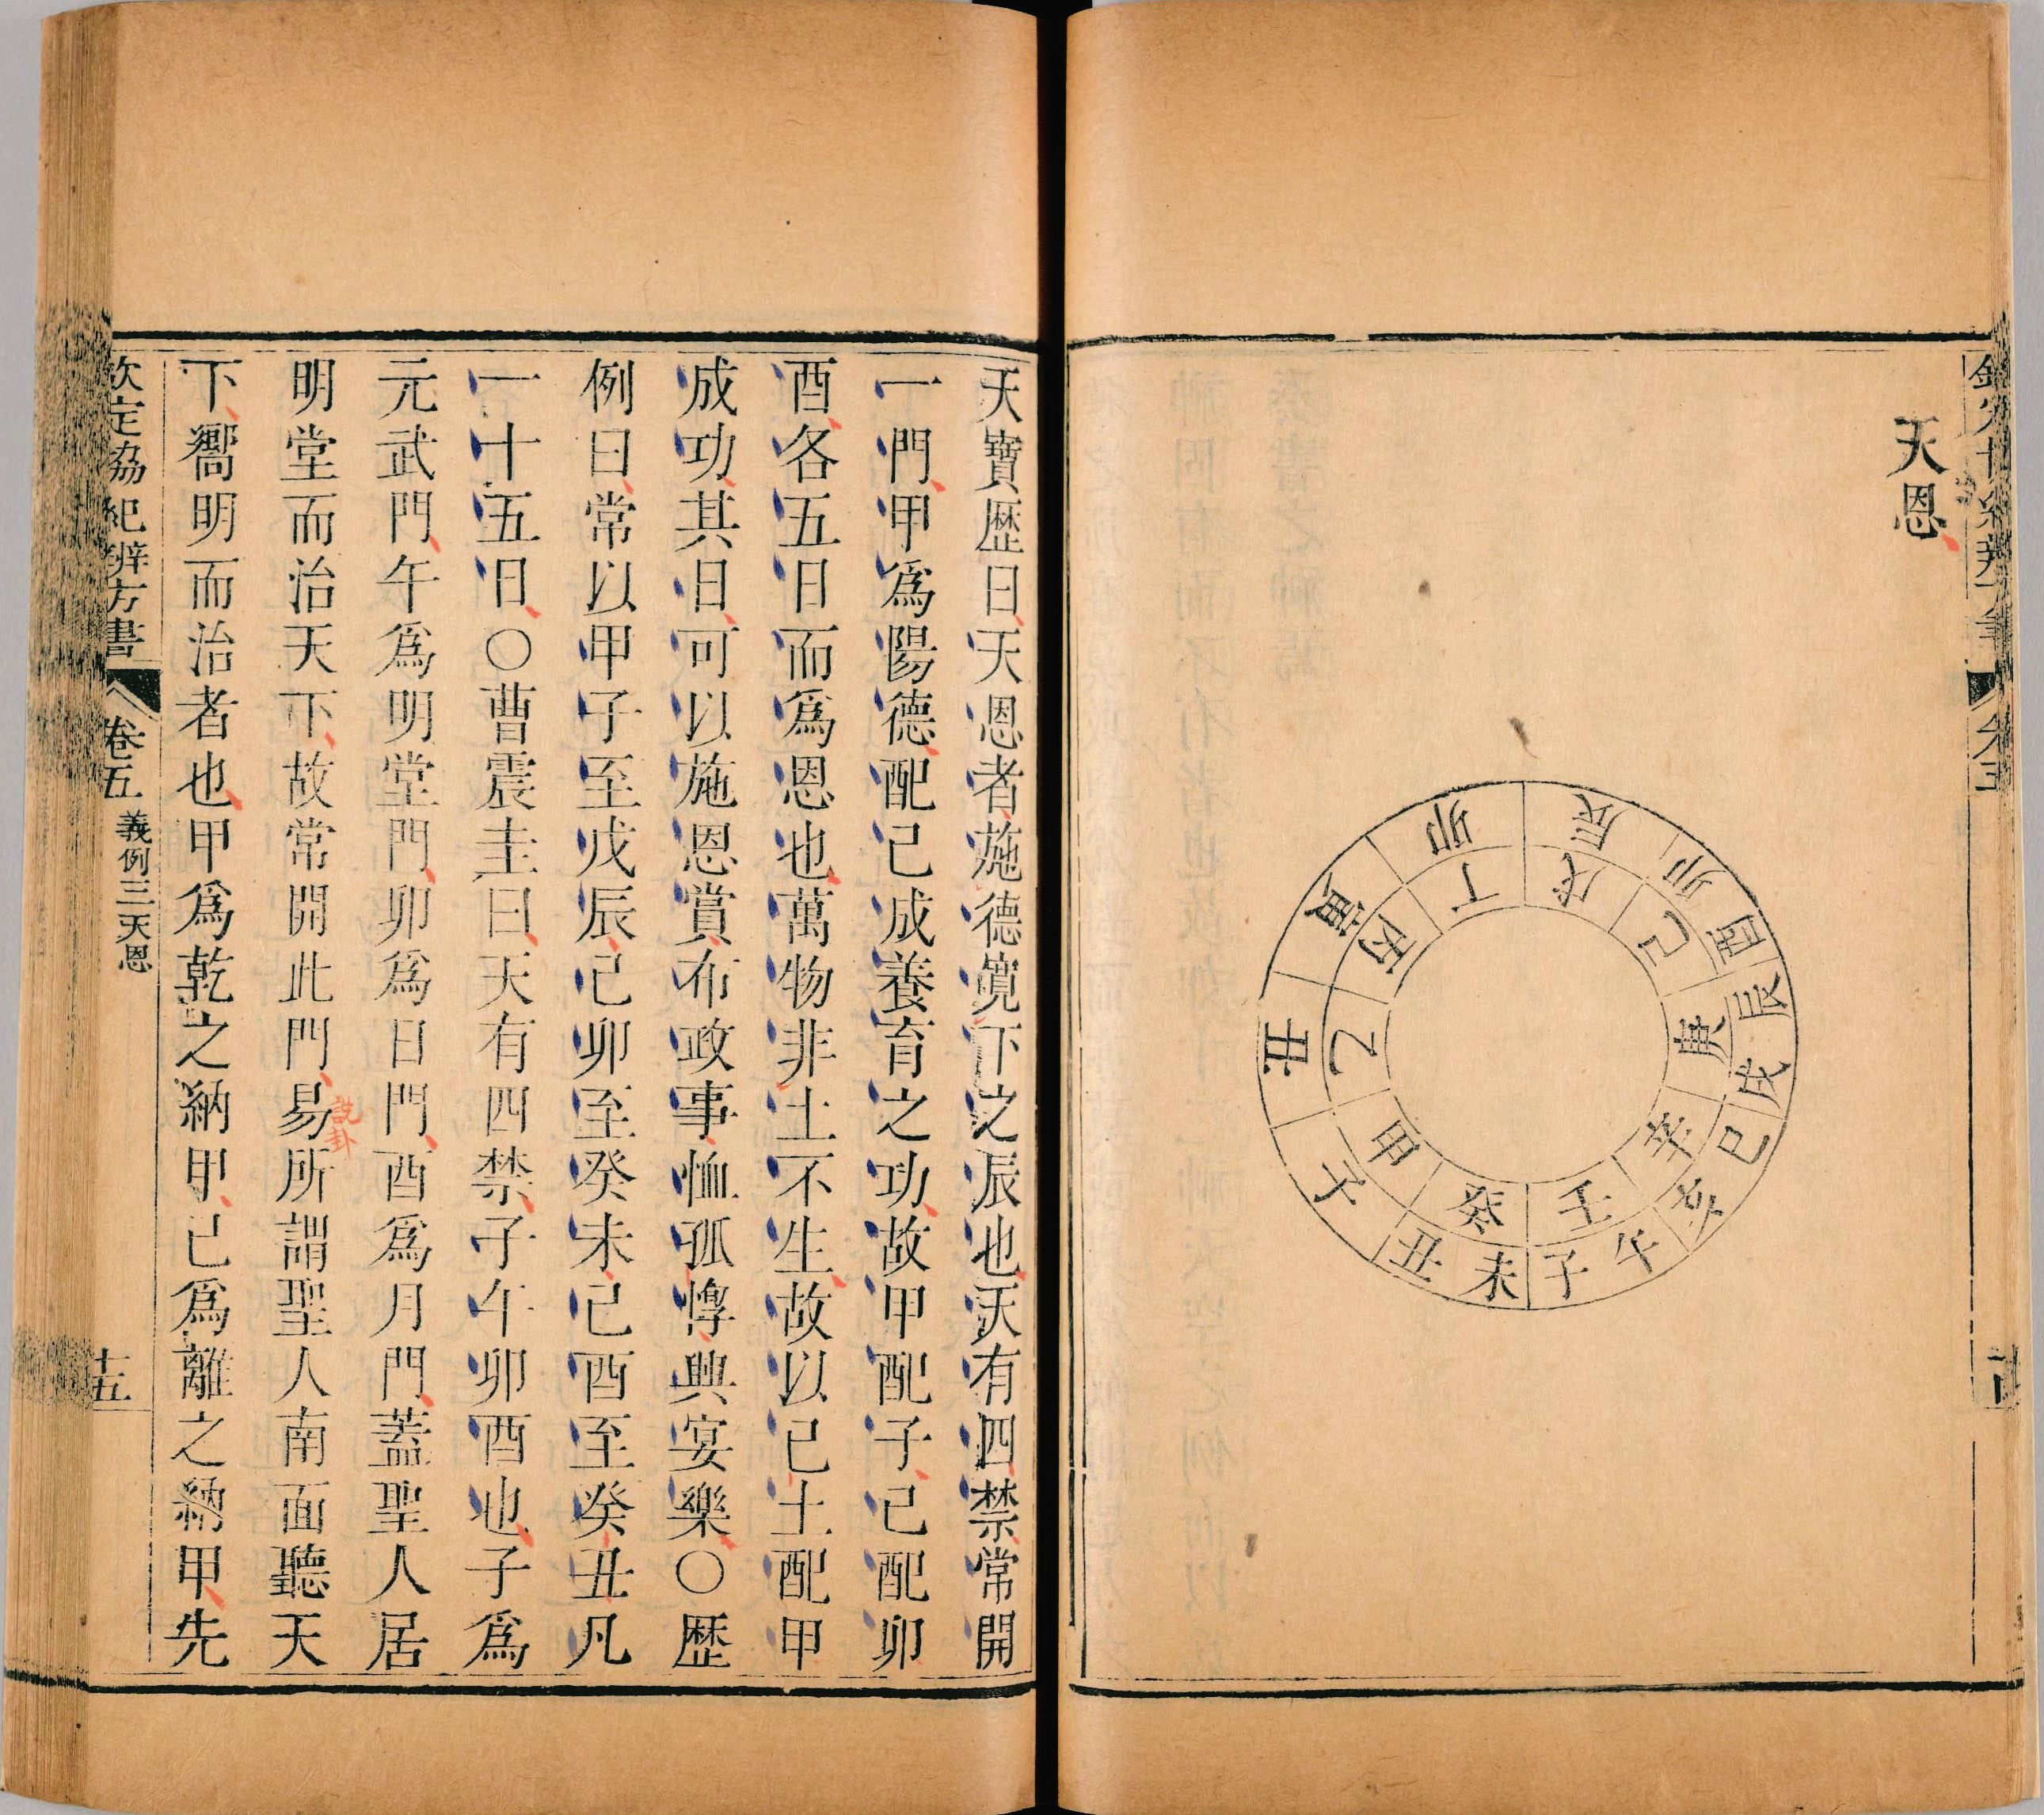 天恩
辰
戊
卯
己
酉
辰
庚
戌
巳
辛
亥
午
壬
子
未
癸
丑
子
甲
丑
乙
寅
丙
卯
丁
天寶歷曰天恩者施德寬下之辰也天有四禁常開
一門甲為陽德配己成養育之功故甲配子己配卯
酉各五日而為恩也萬物非土不生故以己土配甲
成功其日可以施恩賞布政事恤孤惸興宴樂〇歷
例曰常以甲子至戊辰己卯至癸未己酉至癸丑凡
一十五日〇曹震圭曰天有四禁子午卯酉也子為
元武門午為明堂門卯為日門酉為月門蓋聖人居
明堂而治天下故常開此門易所謂聖人南面聽天
說卦
下嚮明而治者也甲爲乾之納甲己爲離之納甲先
欽定協紀辨方書 卷五 義例三天恩 十五